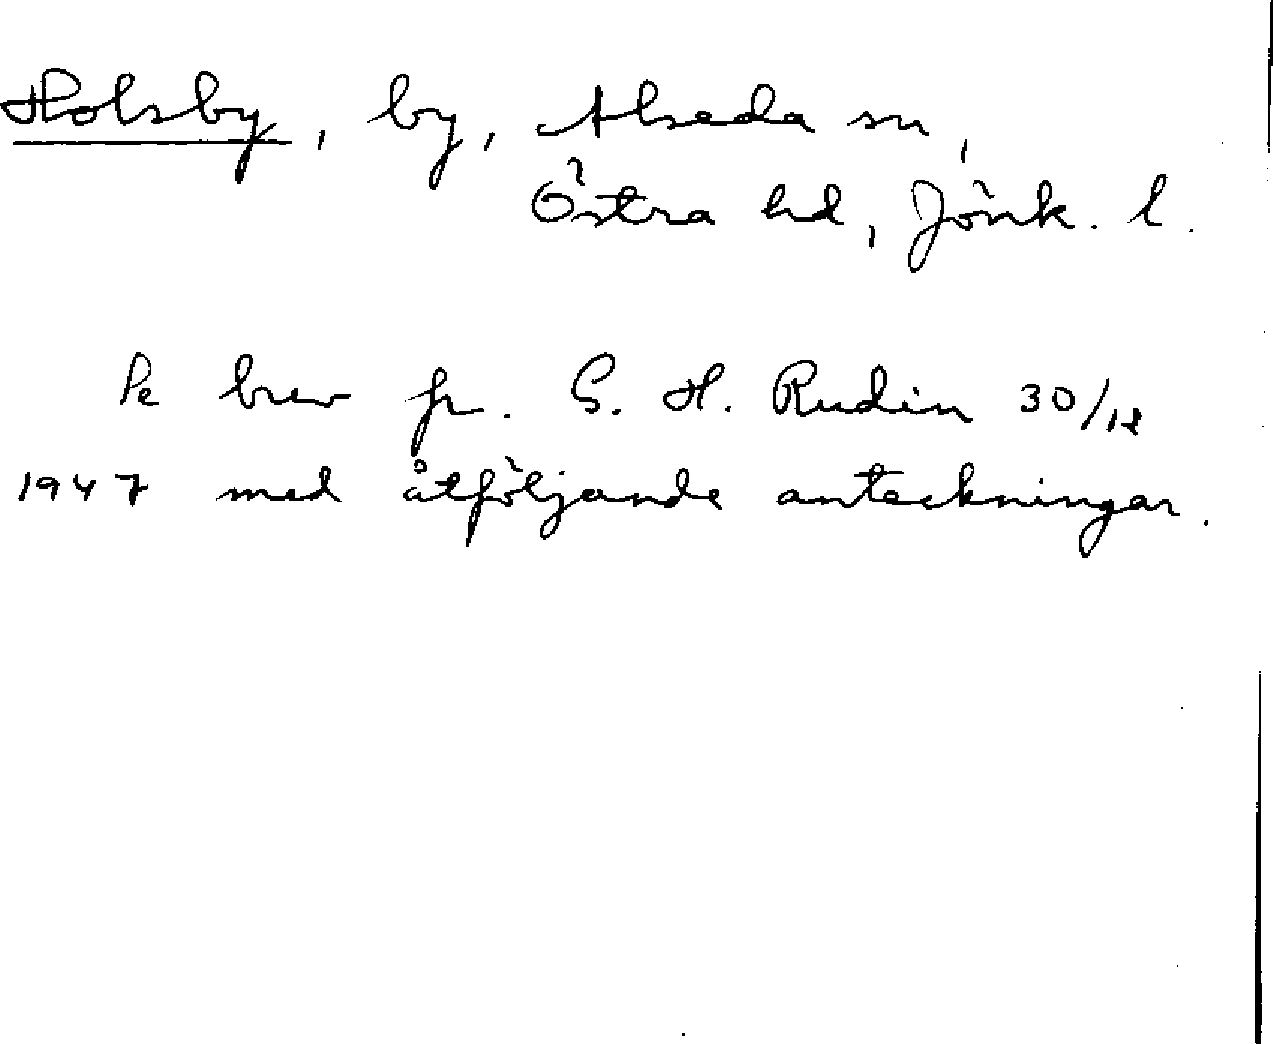 Holsby, by, Alseda sn,
Östra hd, Jönk. l.
Se brev fr. G. H. Rudin 30/12
1947 med åtföljande anteckningar.